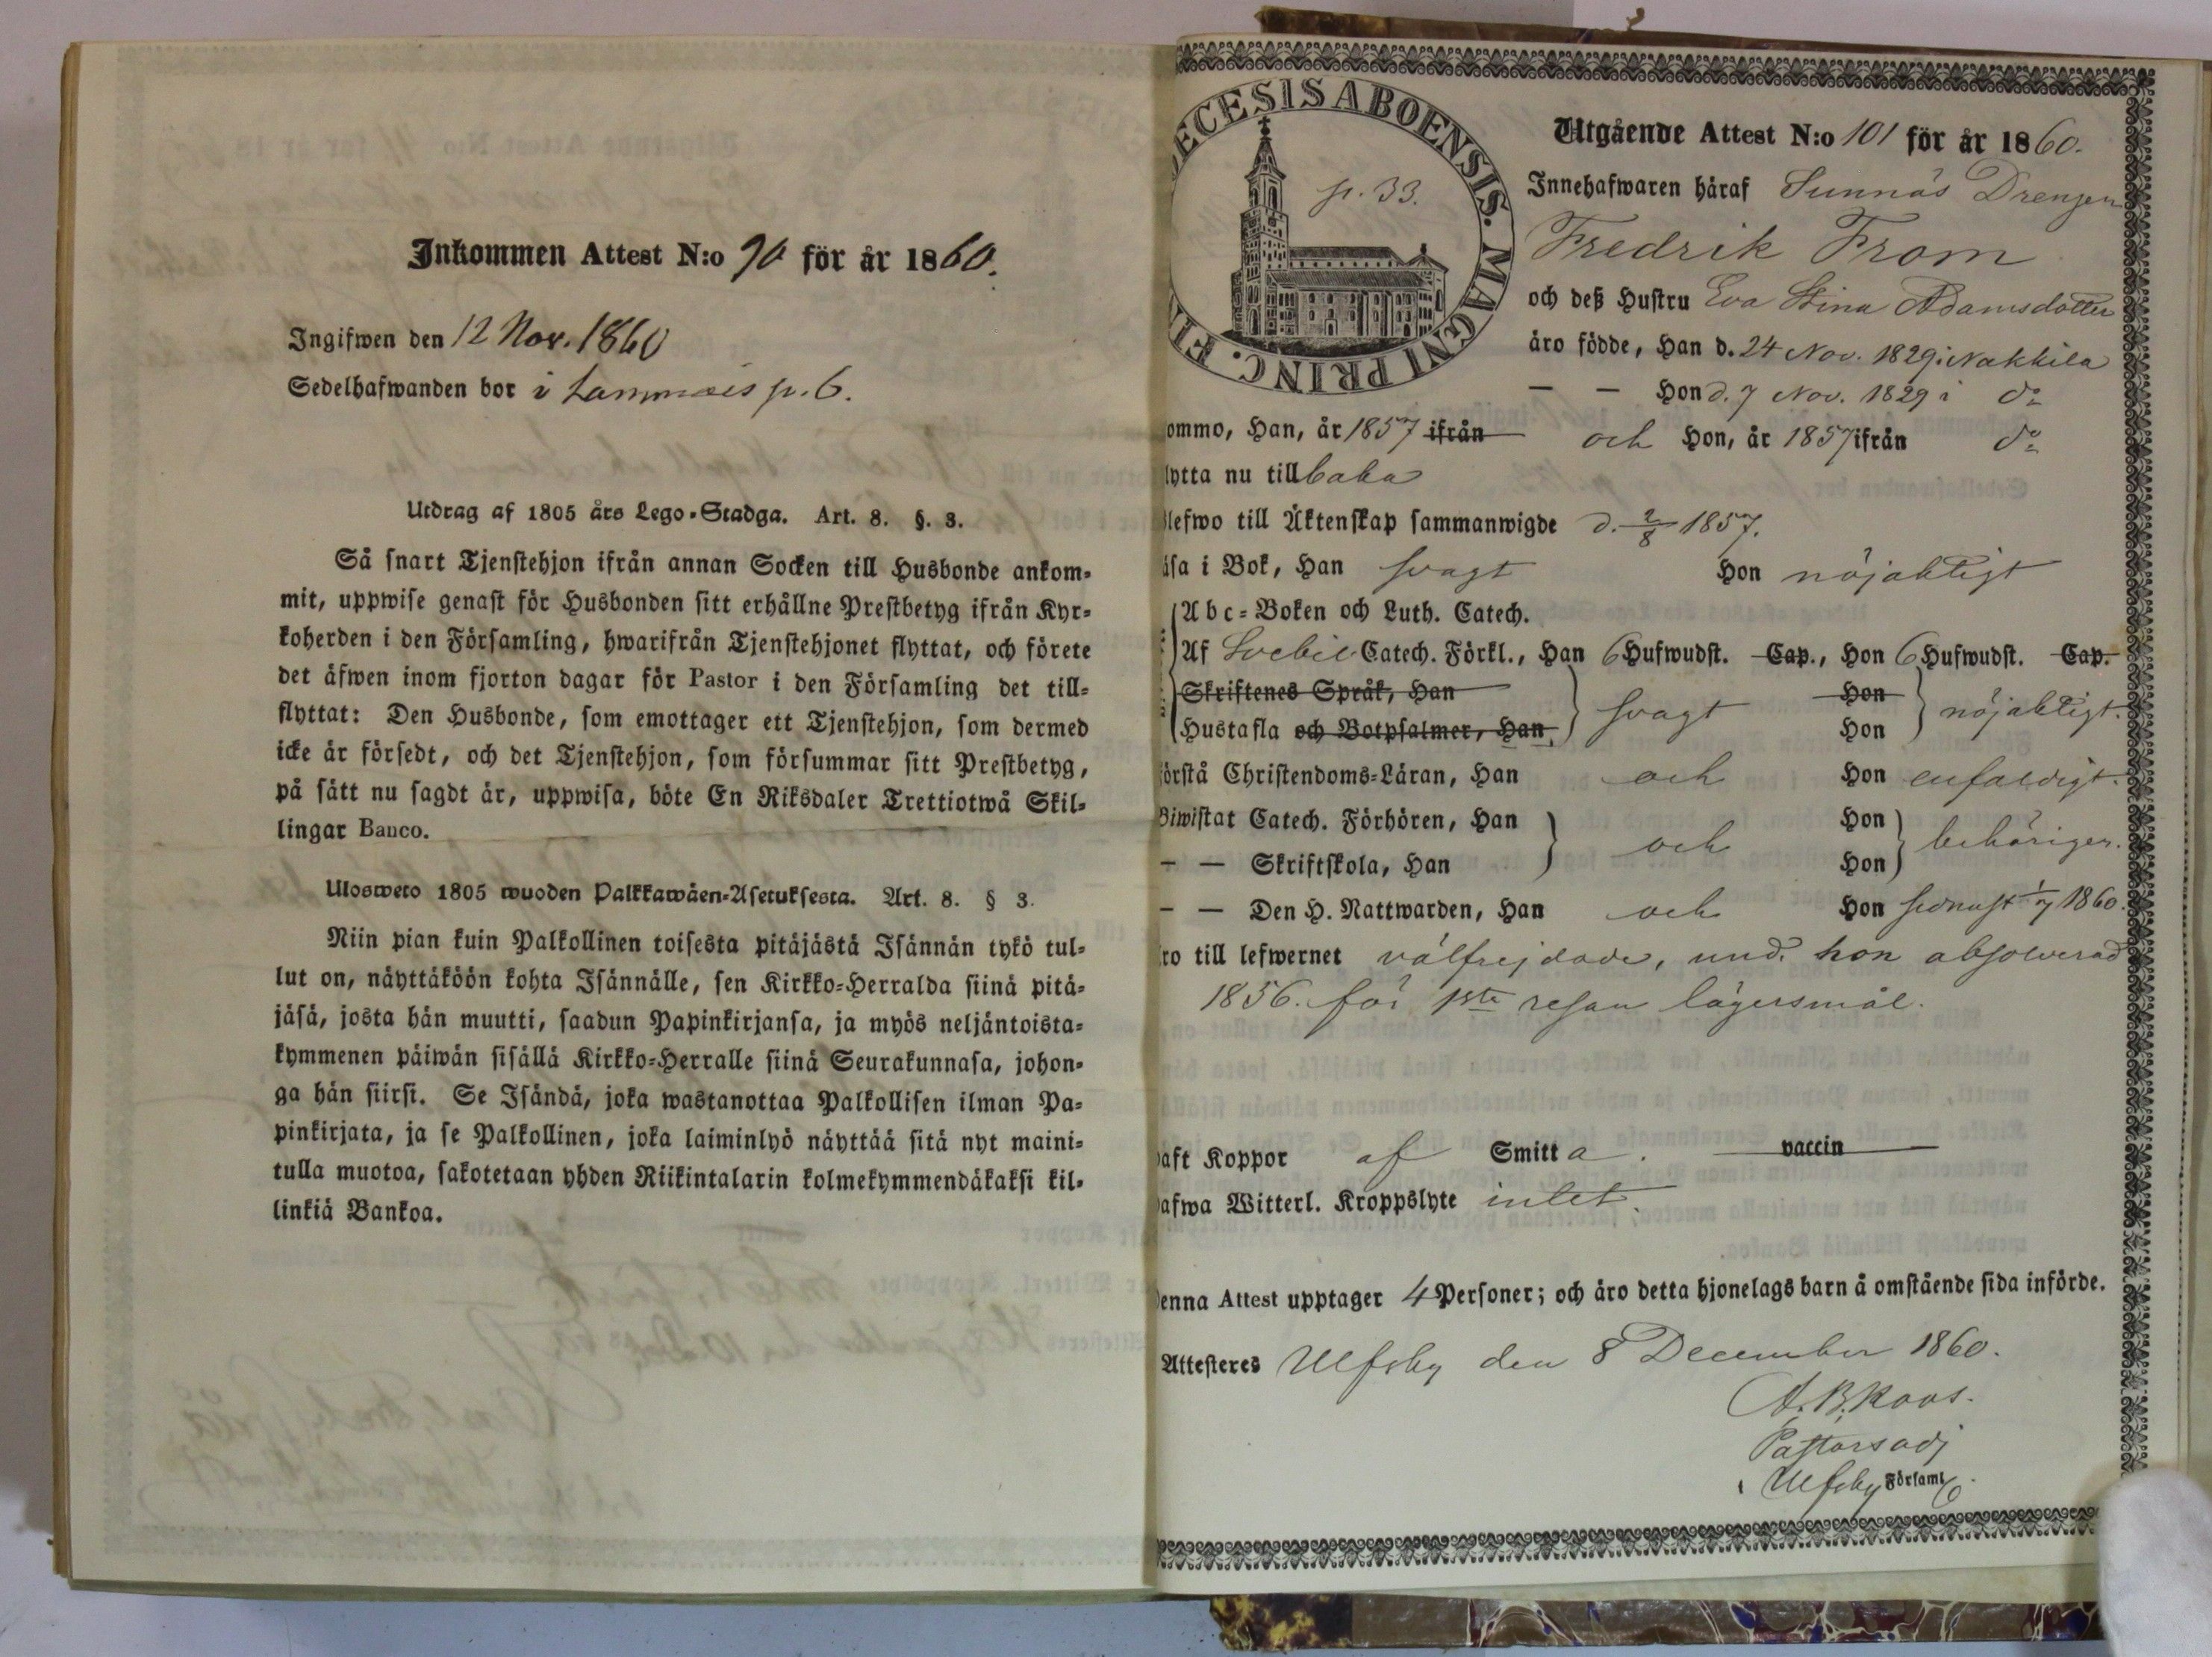 Inkommen Attest N:o 90 för år 1860.
Ingifwen den 12 Nov. 1860
Sedelhafwanden bor i Lammais p. 6.
Utdrag af 1805 års Lego-Stadga. Art. 8. §. 3.
Så snart Tjenstehjon ifrån annan Socken till Husbonde ankom-
mit, uppwise genast för Husbonden sitt erhållne Prestbetyg ifrån Kyr-
koherden i den Församling, hwarifrån Tjenstehjonet flyttat, och förete
det äfwen inom fjorton dagar för Pastor i den Församling det till-
flyttat: Den Husbonde, som emottager ett Tjenstehjon, som dermed
icke är försedt, och det Tjenstehjon, som försummar sitt Prestbetyg,
på sätt nu sagdt är, uppwisa, böte En Riksdaler Trettiotwå Skil-
lingar Banco.
Ulosweto 1805 wuoden Palkkawäen-Asetuksesta. Art. 8. § 3.
Niin pian kuin Palkollinen toisesta pitäjästä Isännän tykö tul-
lut on, näyttäköön kohta Isännälle, sen Kirkko-Herralda siinä pitä-
jäsä, josta hän muutti, saadun Papinkirjansa, ja myös neljäntoista-
kymmenen päiwän sisällä Kirkko-Herralle siinä Seurakunnasa, johon-
ga hän siirsi. Se Isändä, joka wastanottaa Palkollisen ilman Pa-
pinkirjata, ja se Palkollinen, joka laiminlyö näyttää sitä nyt maini-
tulla muotoa, sakotetaan yhden Riikintalarin kolmekymmendäkaksi kil-
linkiä Bankoa.
ECESIS ABOENSIS. MAGNI PRINC. FIN
p. 33.
Utgående Attest N:o 101 för år 1860.
Innehafwaren häraf Sunnäs Drengen
Fredrik From
och deß Hustru Eva Stina Adamsdotter
äro födde, Han d. 24 Nov. 1829 i Nakkila
— — Hon d. 7 Nov. 1829 i do
ommo, Han, år 1857 ifrån och Hon, år 1857 ifrån do
lytta nu tillbaka
lefwo till Äktenskap sammanwigde d. 2/8 1857.
äsa i Bok, Han svagt Hon nöjaktigt
Abc-Boken och Luth. Catech.
Af Svebil Catech. Förkl., Han 6 Hufwudst. Cap., Hon 6 Hufwudst. Cap.
Skriftenes Språk, Han Hon
Hustafla och Botpsalmer, Han svagt Hon nöjaktigt.
örstå Christendoms-Läran, Han och Hon enfaldigt.
Biwistat Catech. Förhören, Han Hon
— — Skriftskola, Han och Hon behörigen.
— — Den H. Nattwarden, Han och Hon sednast 1/7 1860.
ro till lefwernet välfrejdade, und. hon absolverad
1856. för 1sta resan lägersmål.
aft Koppor af Smitta. vaccin
afwa Witterl. Kroppslyte intet.
enna Attest upptager 4 Personer; och äro detta hjonelags barn å omstående sida införde.
Attesteres Ulfsby den 8 December 1860.
A. B. Roos.
Pastorsadj
i Ulfsby Församl